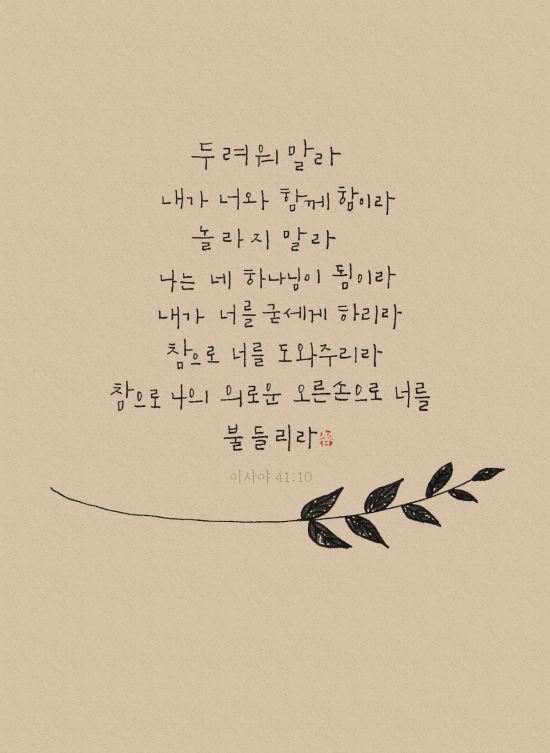 두려워 말라
내가 너와 함께 함이라
놀라지 말라
나는 네 하나님이 됨이라
내가 너를 굳세게 하리라
참으로 너를 도와주리라
참으로 나의 의로운 오른손으로 너를
붙들리라
이사야 41:10